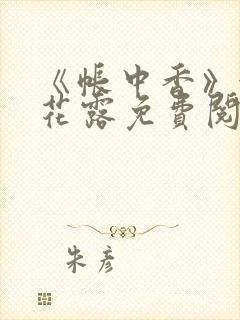 《帐中香》
花露免费阅
朱彦